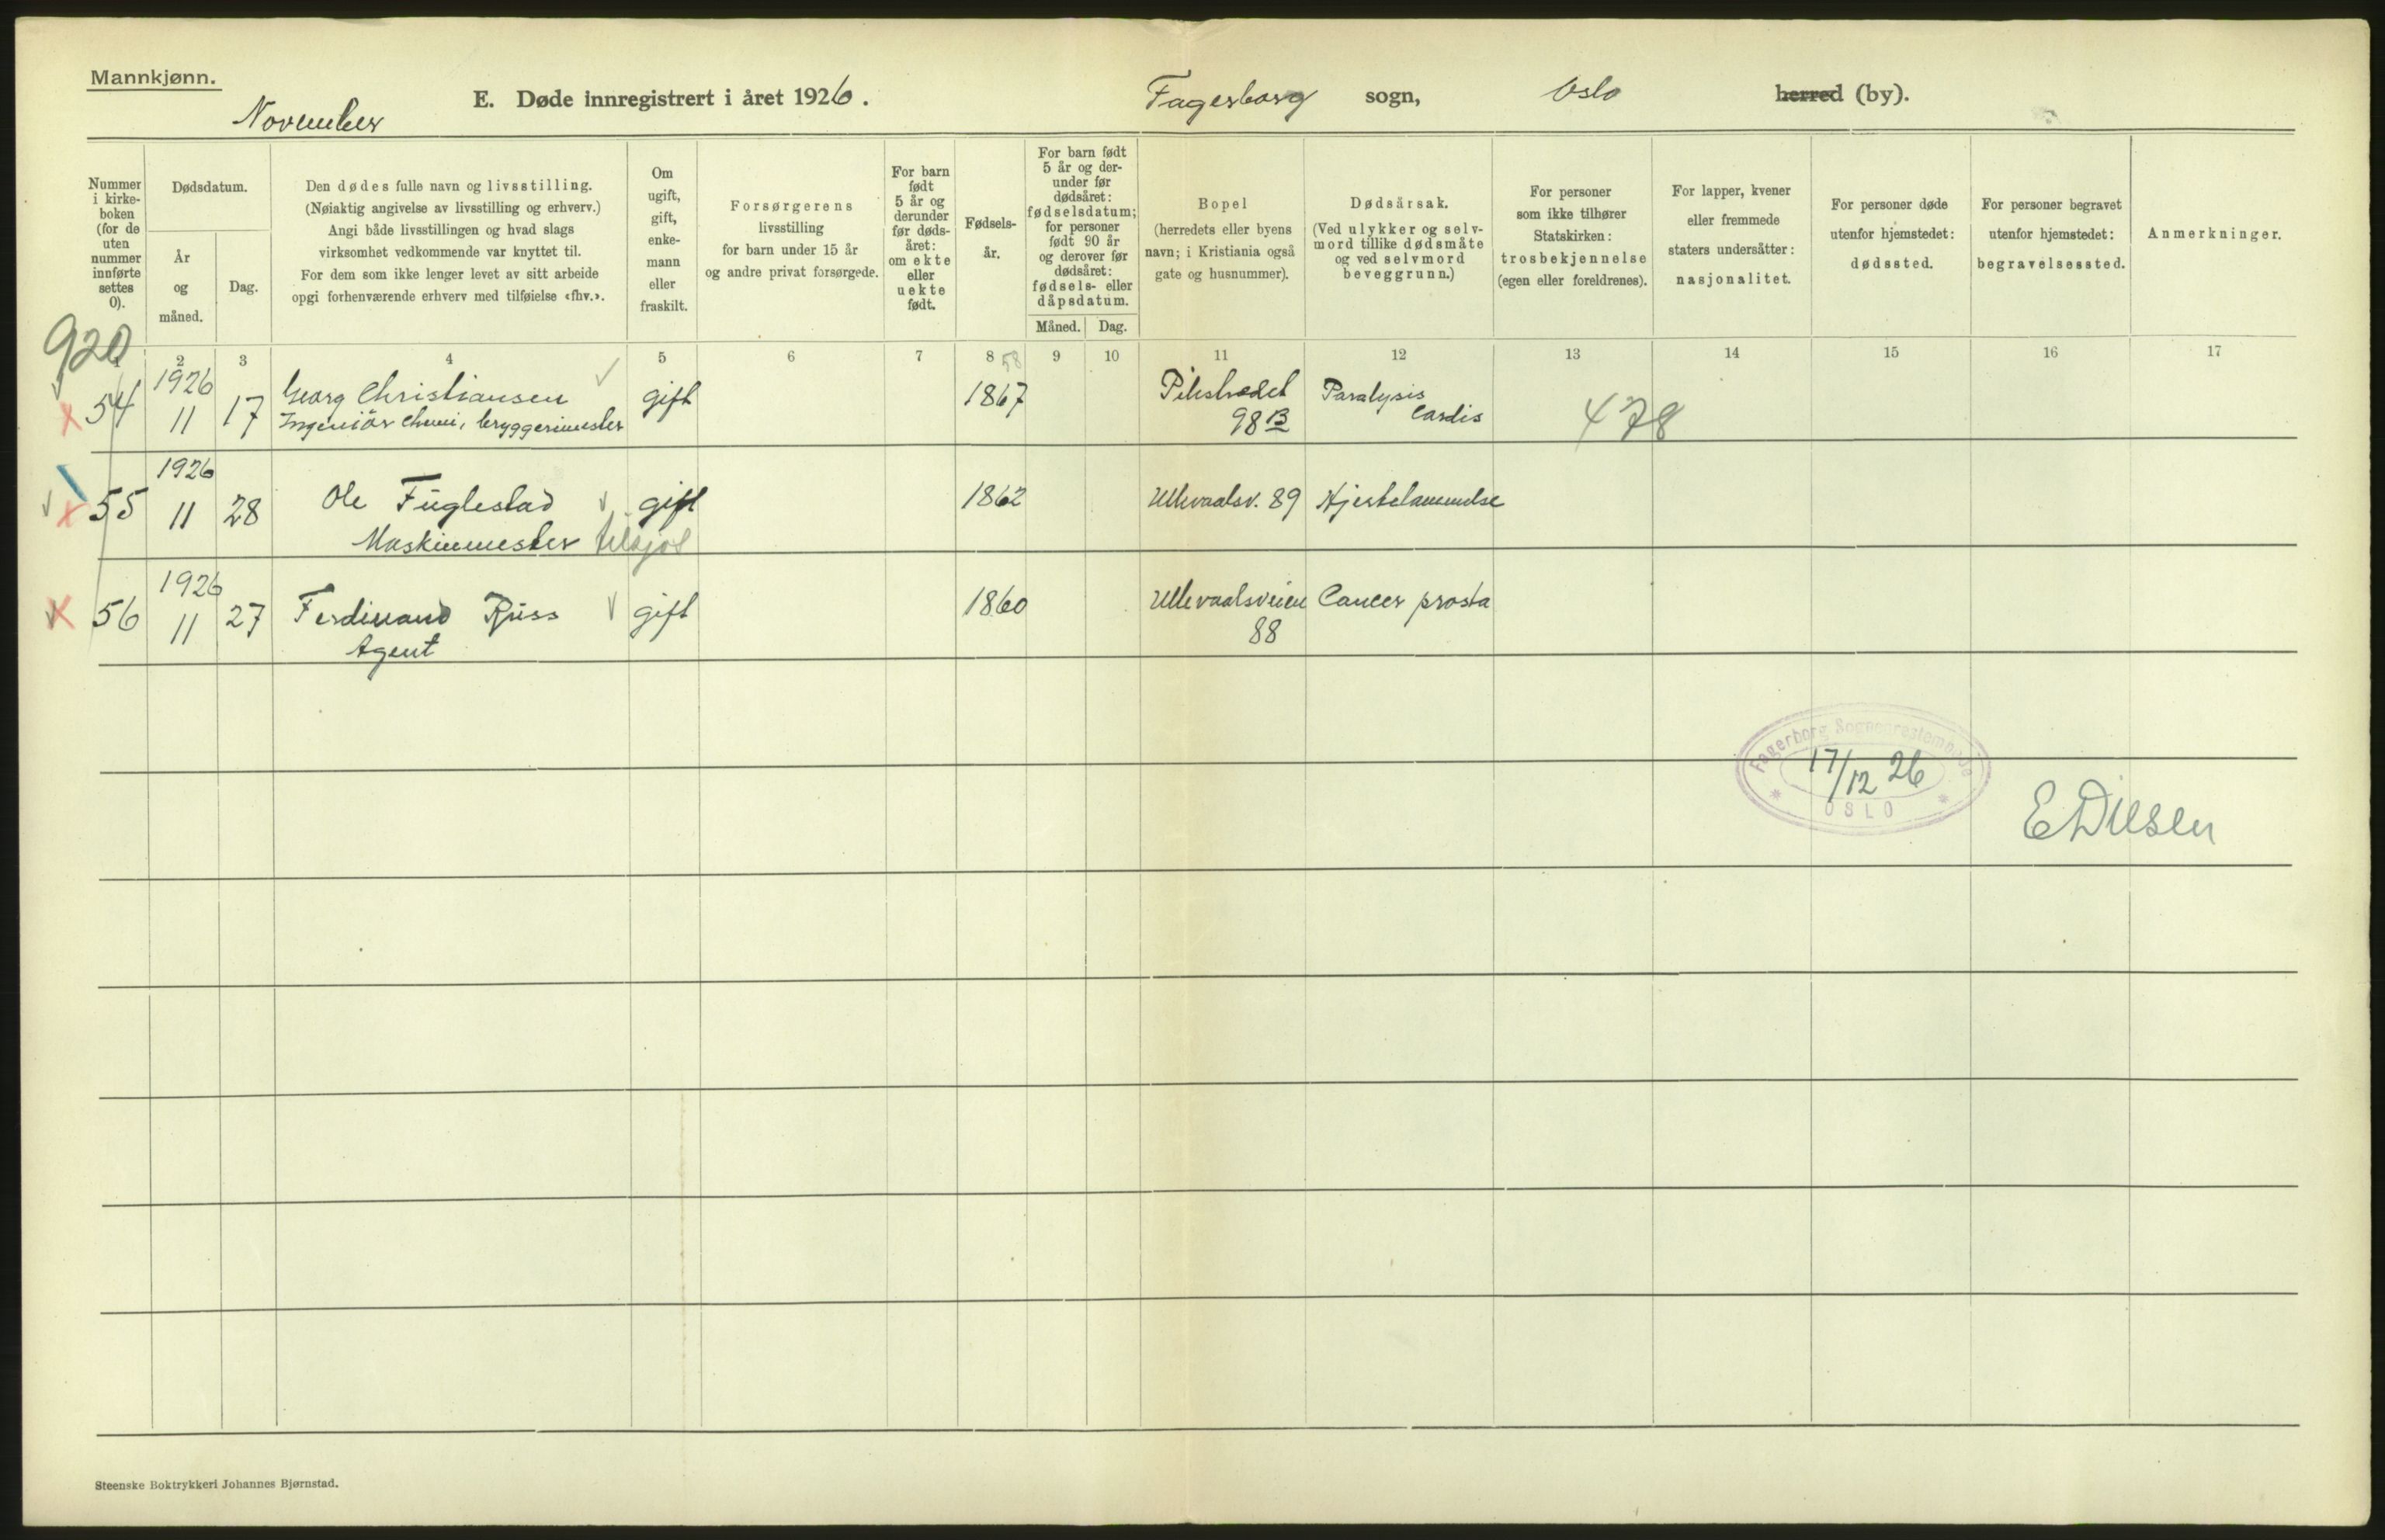 Mannkjønn.
November
E. Døde innregistrert i året 1926.
Fagerborg sogn, Oslo herred (by).
Nummer i kirke-boken (for de uten nummer innførte settes 0).
Dødsdatum.
År og måned.
Dag.
Den dødes fulle navn og livsstilling.
(Nøiaktig angivelse av livsstilling og erhverv.)
Angi både livsstillingen og hvad slags
virksomhet vedkommende var knyttet til.
For dem som ikke lenger levet av sitt arbeide
opgi forhenværende erhverv med tilføielse «fhv.».
Om ugift, gift, enke-mann eller fraskilt.
Forsørgerens
livsstilling
for barn under 15 år
og andre privat forsørgede.
For barn født 5 år og derunder før døds-året: om ekte eller uekte født.
Fødsels-år.
For barn født 5 år og der-under før dødsåret: fødselsdatum; for personer født 90 år og derover før dødsåret: fødsels- eller dåpsdatum.
Måned. Dag.
Bopel
(herredets eller byens
navn; i Kristiania også
gate og husnummer).
Dødsårsak.
(Ved ulykker og selv-
mord tillike dødsmåte
og ved selvmord
beveggrunn.)
For personer
som ikke tilhører
Statskirken:
trosbekjennelse
(egen eller foreldrenes).
For lapper, kvener
eller fremmede
staters undersåtter:
nasjonalitet.
For personer døde
utenfor hjemstedet:
dødssted.
For personer begravet
utenfor hjemstedet:
begravelsessted.
Anmerkninger.
920
2 3 4 5 6 7 8 9 10 11 12 13 14 15 16 17
58
54 1926 11 17 Georg Christiansen gift 1867 Pilestredet Paralysis
Ingeniör chemi, bryggerimester 98 B Cardis 478
55 1926 11 28 Ole Fuglestad gift 1862 Ullevaalsv. 89 Hjertelammelse
Maskinmester tilsjøs
56 1926 11 27 Ferdinand Russ gift 1860 Ullevaalsveien Cancer prosta
Agent 88
Fagerborg Sogneprestembede
17/12 26
OSLO
Steenske Boktrykkeri Johannes Bjørnstad.